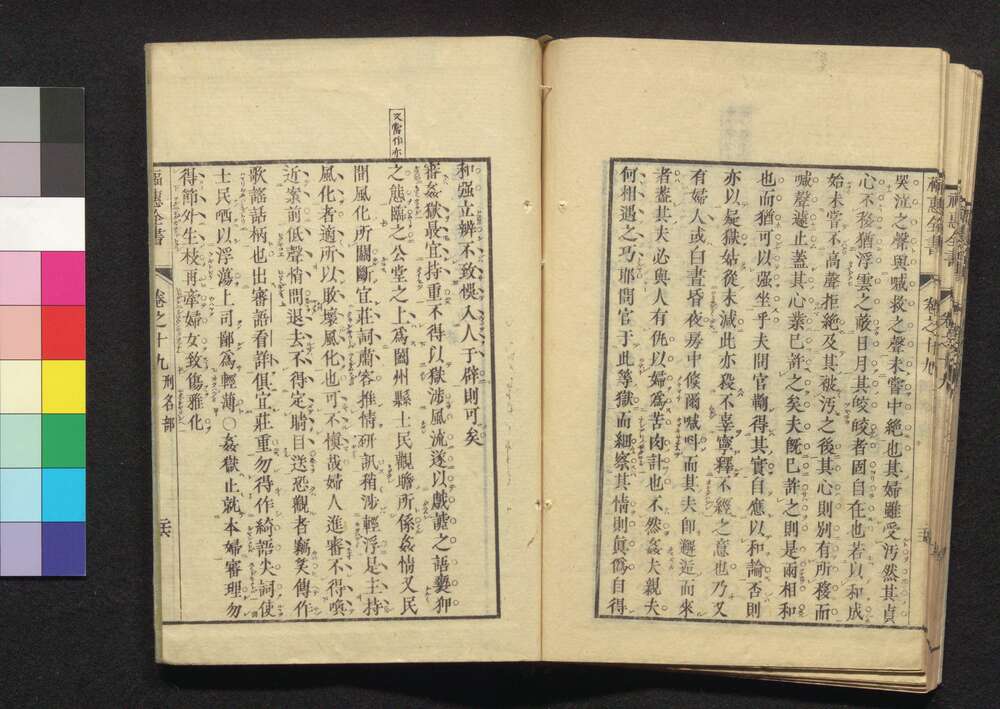 福惠全書 卷之十九
哭泣之聲與喊救之聲未嘗中絶也其婦雖受汚然其貞
心不移猶浮雲之蔽日月其皎皎者固自在也若以和成
始未嘗不高聲拒絶及其被汚之後其心則別有所移而
喊聲遂止蓋其心業已許之矣夫既已許之則是兩相和
也而猶可以强坐乎夫問官鞫得其實自應以和論否則
亦以疑獄姑從末減此亦殺不辜寧釋不經之意也乃又
有婦人或白晝昏夜房中倐爾喊呌而其夫卽邂逅而來
者蓋其夫必與人有仇以婦爲苦肉計也不然姦夫親夫
何相遇之巧耶問官于此等獄而細察其情則眞僞自得
和强立辨不致悞入人于辟則可矣
審姦獄最宜持重不得以獄渉風流遂以戲謔之語褻狎
之態臨之公堂之上爲闔州縣士民觀瞻所係姦情又民
又當作亦
間風化所關斷宜莊詞肅容推情硏訊稍渉輕浮是主持
風化者適所以敗壞風化也可不愼哉婦人進審不得喚
近案前低聲悄問退去不得定睛目送恐觀者竊笑傳作
歌謠話柄也出審語看詳俱宜莊重勿得作綺語失詞使
士民哂以浮蕩上司鄙爲輕薄〇姦獄止就本婦審理勿
得節外生枝再牽婦女致傷雅化
福惠全書 卷之十九 刑名部 二十六